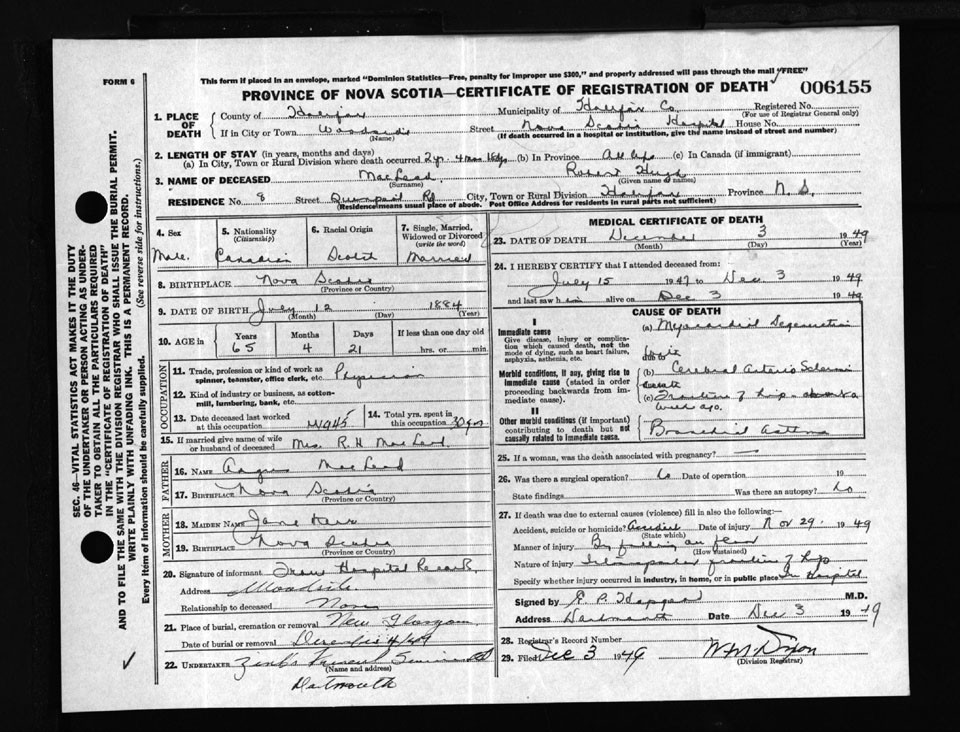 FORM 6
This form if placed in an envelope, marked "Dominion Statistics—Free, penalty for improper use $300," and properly addressed will pass through the mail "FREE"
PROVINCE OF NOVA SCOTIA—CERTIFICATE OF REGISTRATION OF DEATH 006155
1. PLACE OF DEATH
County of Halifax Municipality of Halifax Co. Registered No.
(For use of Registrar General only)
If in City or Town Woodside Street Nova Scotia Hospital House No.
(Name) (If death occurred in a hospital or institution, give the name instead of street and number)
2. LENGTH OF STAY (in years, months and days)
(a) In City, Town or Rural Division where death occurred 2 yr. 4 mos (b) In Province All life (c) In Canada (if immigrant)
3. NAME OF DECEASED MacLeod Robert Hugh
(Surname) (Given name or names)
RESIDENCE No. 8 Street Quinpool Rd City, Town or Rural Division Halifax Province N.S.
(Residence means usual place of abode. Post Office Address for residents in rural parts not sufficient)
4. Sex
Male.
5. Nationality
(Citizenship)
Canadian
6. Racial Origin
Scotch
7. Single, Married, Widowed or Divorced
(write the word)
Married
8. BIRTHPLACE Nova Scotia
(Province or Country)
9. DATE OF BIRTH July 12 1884
(Month) (Day) (Year)
10. AGE in
Years Months Days If less than one day old
65 4 21 hrs. or min.
OCCUPATION
11. Trade, profession or kind of work as spinner, teamster, office clerk, etc. Physician
12. Kind of industry or business, as cotton-mill, lumbering, bank, etc.
13. Date deceased last worked at this occupation 1945
14. Total yrs. spent in this occupation 30 yrs
15. If married give name of wife or husband of deceased Mrs. R.H. MacLeod.
FATHER
16. NAME Angus MacLeod
17. BIRTHPLACE Nova Scotia
(Province or Country)
MOTHER
18. MAIDEN NAME Jane
19. BIRTHPLACE Nova Scotia
(Province or Country)
20. Signature of informant From Hospital Records.
Address Woodside
Relationship to deceased None
21. Place of burial, cremation or removal New Glasgow
Date of burial or removal
22. UNDERTAKER Zink's Funeral
(Name and address)
Dartmouth
MEDICAL CERTIFICATE OF DEATH
23. DATE OF DEATH December 3 1949
(Month) (Day) (Year)
24. I HEREBY CERTIFY that I attended deceased from:
July 15 1947 to Dec 3 1949
and last saw him alive on Dec 3 1949
CAUSE OF DEATH
I
Immediate cause
Give disease, injury or complication which caused death, not the mode of dying, such as heart failure, asphyxia, asthenia, etc.
(a) Myocardial Degeneration
due to
Morbid conditions, if any, giving rise to immediate cause (stated in order proceeding backwards from immediate cause).
(b) Cerebral Arterio Sclerosis
due to
(c) Fracture of hip about a week ago.
II
Other morbid conditions (if important) contributing to death but not causally related to immediate cause.
Bronchial Asthma
25. If a woman, was the death associated with pregnancy? —
26. Was there a surgical operation? No Date of operation 19
State findings Was there an autopsy? No
27. If death was due to external causes (violence) fill in also the following:—
Accident, suicide or homicide? Accident Date of injury Nov 29. 1949
(State which)
Manner of injury By falling on floor
(How sustained)
Nature of injury fracture of hip
Specify whether injury occurred in industry, in home, or in public place In Hospital
Signed by M.D.
Address Dartmouth Date Dec 3 1949
28. Registrar's Record Number
29. Filed Dec 3 1949 W.M. Dixon
(Division Registrar)
SEC. 46—VITAL STATISTICS ACT MAKES IT THE DUTY
OF THE UNDERTAKER OR PERSON ACTING AS UNDER-
TAKER TO OBTAIN ALL THE PARTICULARS REQUIRED
IN THE "CERTIFICATE OF REGISTRATION OF DEATH"
AND TO FILE THE SAME WITH THE DIVISION REGISTRAR WHO SHALL ISSUE THE BURIAL PERMIT.
WRITE PLAINLY WITH UNFADING INK. THIS IS A PERMANENT RECORD.
Every item of information should be carefully supplied. (See reverse side for instructions.)